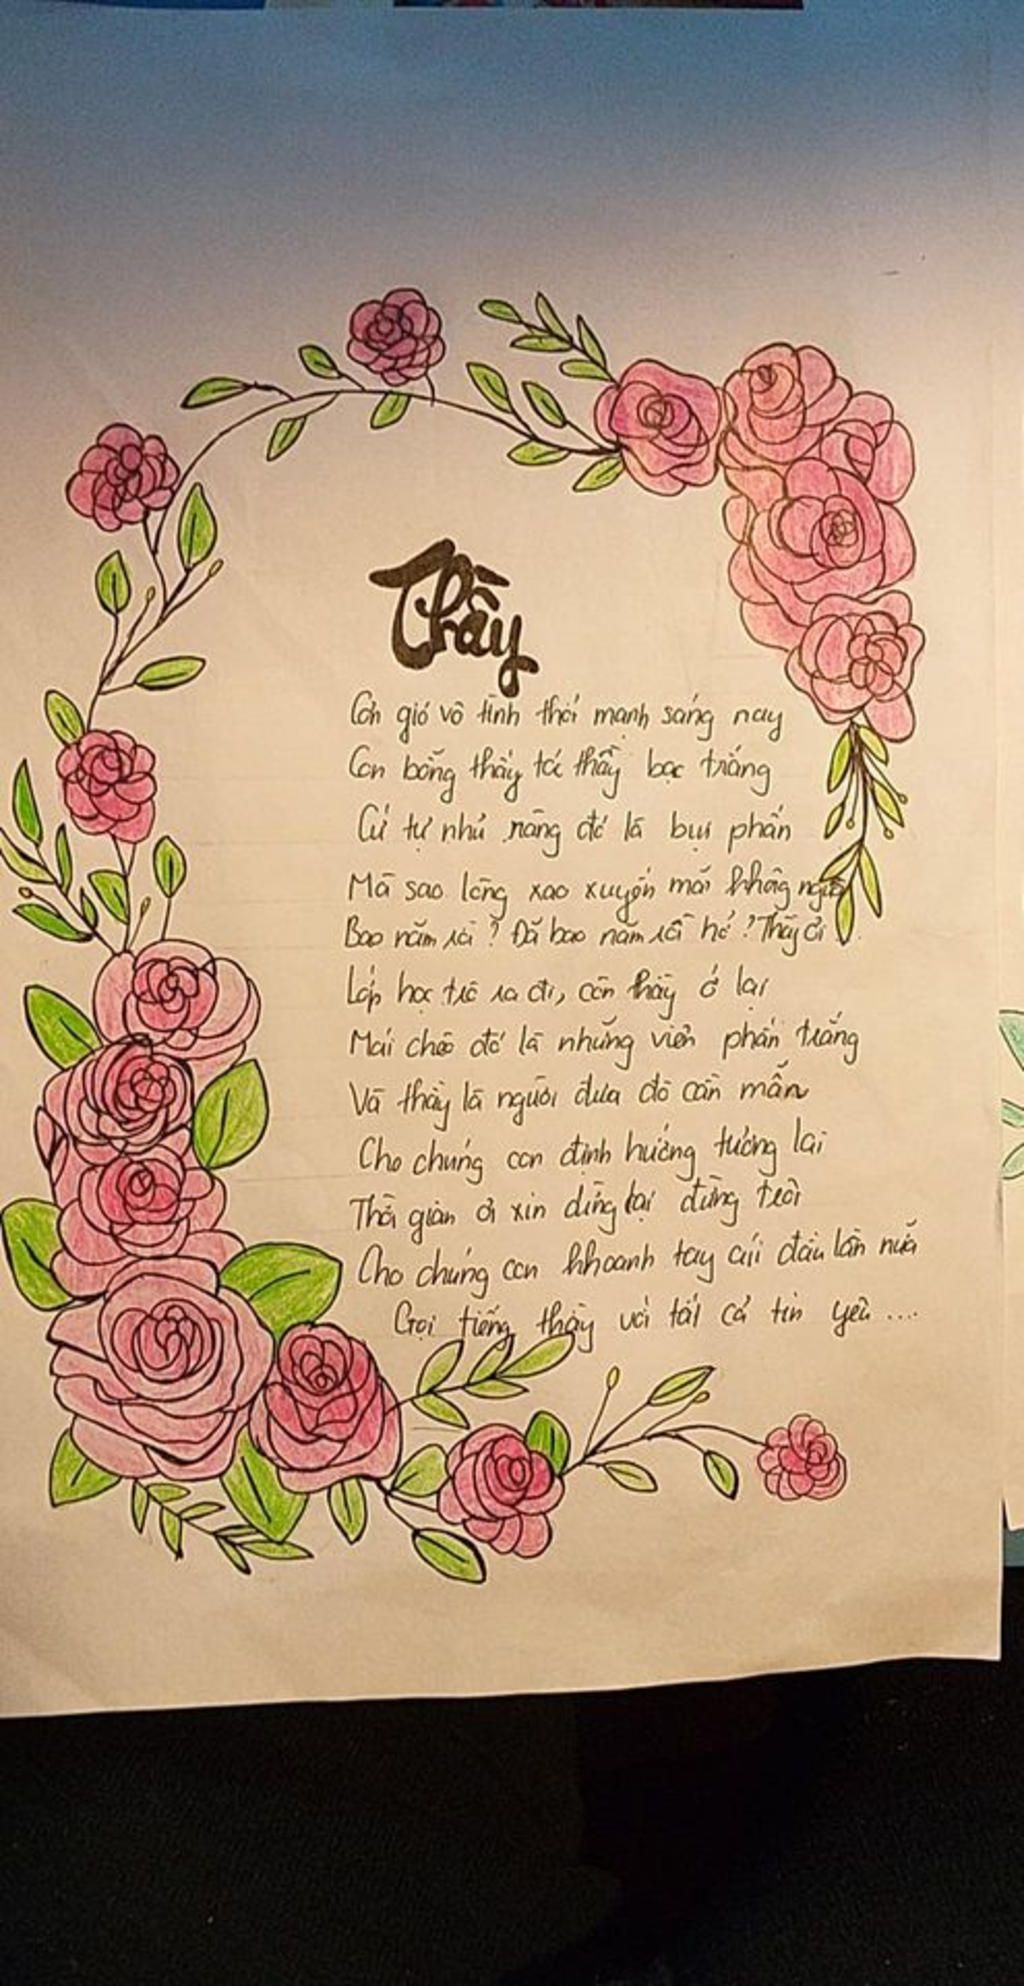 Thầy
Cơn gió vô tình thổi mạnh sáng nay
Con bỗng thấy tóc thầy bạc trắng
Cứ tự nhủ rằng đó là bụi phấn
Mà sao lòng xao xuyến mãi không nguôi
Bao năm rồi? Đã bao năm rồi hở? Thầy ơi..
Lớp học trò ra đi, còn thầy ở lại
Mái chèo đó là những viên phấn trắng
Và thầy là người đưa đò cần mẫn
Cho chúng con định hướng tương lai
Thời gian ơi xin dừng lại đừng trôi
Cho chúng con khoanh tay cúi đầu lần nữa
Gọi tiếng thầy với tất cả tin yêu ....